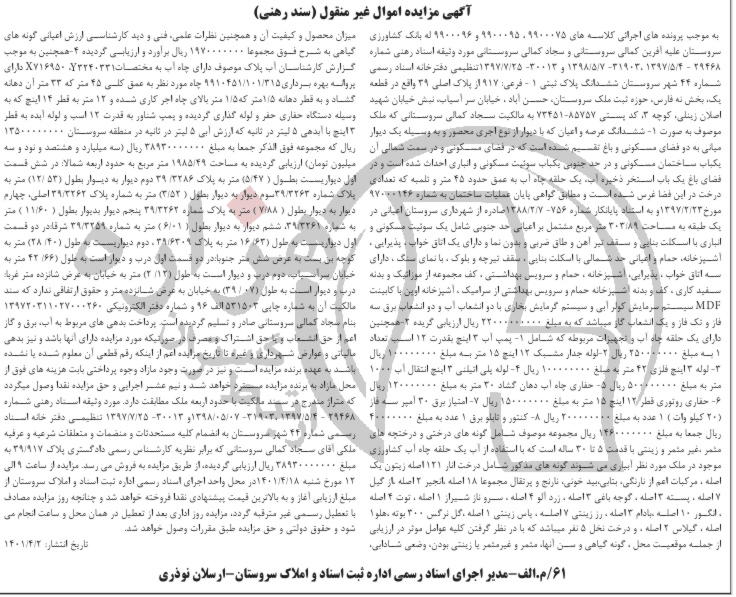 آگهی مزایده اموال غیر منقول (سند رهنی)
به موجب پرونده های اجرائی کلاسه های ۹۹۰۰۰۷۵ ، ۹۹۰۰۰۹۵ و ۹۹۰۰۰۹۶ له بانک کشاورزی
سروستان علیه آفرین کمالی سروستانی و سجاد کمالی سروستانی مورد وثیقه اسناد رهنی شماره
۲۹۴۶۸ - ۱۳۹۷/۵/۴ ،۳۱۹۰۳- ۱۳۹۸/۵/۷ و ۳۰۰۱۳- ۱۳۹۷/۷/۲۵تنظیمی دفترخانه اسناد رسمی
شماره ۴۴ شهر سروستان ششدانگ پلاک ثبتی ۱ - فرعی: ۹۱۷ از پلاک اصلی ۳۹ واقع در قطعه
یک، بخش نه فارس، حوزه ثبت ملک سروستان، حسن آباد ، خیابان سر آسیاب، نبش خیابان شهید
اصلان زینلی، کوچه ۳، کد پستی ۸۵۷۵۷-۷۳۴۵۱ به مالکیت سجاد کمالی سروستانی که ملک
موصوف به صورت ۱- ششدانگ عرصه و اعیان که با دیوار از نوع اجری محصور و به وسیله یک دیوار
میانی به دو فضای مسکونی و باغ تقسیم شده است که در فضای مسکونی و در سمت شمالی آن
یکباب ساختمان مسکونی و در حد جنوبی یکباب سوئیت مسکونی و انباری احداث شده است و در
فضای باغ یک باب استخر ذخیره آب، یک حلقه چاه آب به عمق حدود ۴۵ متر و تلمبه که تعدادی
درخت در این فضا غرس شده است و مطابق گواهی پایان عملیات ساختمان به شماره ۹۷۰۰۰۱۴۶
مورخ۱۳۹۷/۲/۲۳و به استناد پایانکار شماره ۷۵۶- ۱۳۸۸/۲/۷صادره از شهرداری سروستان اعیانی در
یک طبقه به مساحت ۳۰۳/۸۹ متر مربع مشتمل بر اعیانی حد جنوبی شامل یک سوئیت مسکونی و
انباری با اسکلت بنایی و سقف تیر آهن و طاق ضربی و بدون نما و دارای یک اتاق خواب ، پذیرایی ،
آشپزخانه، حمام و اعیانی حد شمالی با اسکلت بنایی ، سقف تیرچه و بلوک ، با نمای سنگ ، دارای
سه اتاق خواب ، پذیرایی، آشپزخانه ، حمام و سرویس بهداشتی ، کف مجموعه از موزائیک و بدنه
سفید کاری ، کف و بدنه آشپزخانه حمام و سرویس بهداشتی از سرامیک ، آشپزخانه اوپن با کابینت
MDF سیستم سرمایش کولر آبی و سیستم گرمایش بخاری با دو انشعاب آب و دو انشعاب برق سه
فاز و تک فاز و یک انشعاب گاز میباشد که به مبلغ ۲۲۰۰۰۰۰۰۰۰۰ ریال ارزیابی گریده ۲-همچنین
دارای یک حلقه چاه آب و تجهیزات مربوطه که شامل ۱- پمپ آب ۳ اینچ بقدرت ۱۲ اسب تعداد
۱ به مبلغ ۲۵۰۰۰۰۰۰۰ ریال ۲-لوله جدار مشبک ۱۲ اینچ ۱۵ متر به مبلغ ۱۰۰۰۰۰۰۰۰ ریال
۳- لوله ۳ اینچ فلزی ۴۲ متر به مبلغ ۱۰۰۰۰۰۰۰۰ ریال ۴- لوله پلی اتیلنی ۳ اینچ انتقال آب ۱۰۰۰
متر به مبلغ ۵۰۰۰۰۰۰۰۰ ریال ۵- حفاری چاه آب دهان گشاد ۳۰ متر به مبلغ ۱۲۰۰۰۰۰۰۰ ریال
۶- حفاری روتوری قطر ۱۲ اینچ ۱۵ متر به مبلغ ۱۵۰۰۰۰۰۰۰ ریال ۷- امتیاز برق ۳۰ آمپر سه فاز
(۲۰ کیلو وات ) ۱ عدد به مبلغ ۲۰۰۰۰۰۰۰۰ ریال ۸- کنتور و تابلو برق ۱ عدد به مبلغ ۴۰۰۰۰۰۰۰
ریال جمعا به مبلغ ۱۴۶۰۰۰۰۰۰۰ ریال مجموعه موصوف شامل گونه های درختی و درختچه های
مثمر ،غیر مثمر و زینتی با قدمت ۵ تا ۳۰ ساله است که با استفاده از آب یک حلقه چاه آب کشاورزی
موجود در ملک مورد نظر آبیاری می شوند گونه های مذکور شامل درخت انار ۱۲۱اصله زیتون یک
اصله ، مرکبات اعم از نارنگی، بتابی،بید خونی، نارنج و پرتقال مجموعا ۱۸ اصله ،انجیر ۲اصله ،از گیل
۷ اصله ، پسته ۳اصله ، گوجه باغی ۳اصله ، زرد آلو ۴ اصله ، سرو ناز شیراز ۱ اصله ، توت ۴ اصله
، انگور ۱۰ اصله ،بادام ۳اصله ، رز زینتی ۷ اصله ، یاس زینتی ۱ اصله ،گل نرگس ۳۰۰ بوته ،هلو۱
اصله ، گیلاس ۲ اصله ، و درخت نخل ۵ نفر میباشد که با در نظر گرفتن کلیه عوامل موثر در ارزیابی
از جمله موقعیت محل ، گونه گیاهی و سن آنها، مثمر و غیرمثمر یا زینتی بودن، وضعی شادابی،
میزان محصول و کیفیت آن و همچنین نظرات علمی، فنی و دید کارشناسی ارزش اعیانی گونه های
گیاهی به شرح فوق مجموعا ۱۹۷۰۰۰۰۰۰۰ ریال برآورد و ارزیابی گردیده ۴-همچنین به موجب
گزارش کارشناسان آب پلاک موصوف دارای چاه آب به مختصات X۷۱۶۹۵۰ ،Y۳۲۴۰۳۳۱ دارای
پروانه بهره برداری۹۹۱۰۴۵۱/۱۰۱/۳۱۵ چاه مورد نظر به عمق کلی ۴۵ متر که ۳۳ متر آن دهانه
گشاد و به قطر دهانه ۱/۵متر که۱/۵ متر بالای چاه اجر کاری شده و ۱۲ متر به قطر ۱۴ اینچ که به
وسیله دستگاه حفاری حفر و لوله گذاری گردیده و پمپ شناور به قدرت ۱۲ اسب و لوله آبده به قطر
۳اینچ با آبدهی ۵ لیتر در ثانیه که ارزش آبی ۵ لیتر در ثانیه در منطقه سروستان ۱۳۵۰۰۰۰۰۰۰۰
ریال که مجموعه فوق الذکر جمعا به مبلغ ۳۸۹۳۰۰۰۰۰۰۰ ریال (سه میلیارد و هشتصد و نود و سه
میلیون تومان) ارزیابی گردیده به مساحت ۱۹۸۵/۴۹ متر مربع به حدود اربعه شمالا: در شش قسمت
اول دیواریست بطول ( ۵/۴۷) متر به پلاک ۳۹/۳۲۸۶ دوم دیوار به دیوار بطول ( ۱۲/۵۳) متر به
پلاک شماره ۳۹/۳۲۶۳سوم دیوار به دیوار بطول ( ۳/۵۲ ) متر به شماره پلاک ۳۹/۳۲۶۲اصلی، چهارم
دیوار به دیوار بطول ( ۷/۸۸ ) متر به پلاک شماره ۳۹/۳۲۶۲ پنجم دیوار بدیوار بطول ( ۱۱/۶۰ ) متر
به شماره ۳۹/۳۲۶۱، ششم دیوار به دیوار بطول ( ۶/۰۱ ) متر به شماره ۳۹/۳۲۵۹ شرقا:در دو قسمت
اول دیواریست به طول (۱۶/۶۳ ) متر به پلاک ۳۹/۶۳۰۹ ، دوم دیواریست به طول (۲۸/۴۰ ) متر به
کوچه بن بست به عرض شش متر جنوبا:در دو قسمت اول درب و دیوار است به طول (۴۲/۶۶ متر به
خیابان سر آسیاب، دوم درب و دیوار است به طول (۲/۱۲ ) متر به خیابان به عرض شانزده متر غربا:
درب و دیوار است به طول (۳۹/۰۷ ) به خیابان به عرض شانزده متر و حقوق ارتفاقی ندارد که سند
مالکیت آن به شماره چاپی ۵۳۱۵۰۳ الف ۹۶ و شماره دفتر الکترونیکی ۱۳۹۷۲۰۳۱۱۰۲۷۰۰۰۲۶۰
بنام سجاد کمالی سروستانی صادر و تسلیم گردیده است. پرداخت بدهی های مربوط به آب، برق و گاز
اعم از حق انشعاب و یا حق اشتراک و مصرف در صورتیکه مورد مزایده دارای آنها باشد و نیز بدهی
مالیاتی و عوارض شهرداری و غیره تا تاریخ مزایده اعم از اینکه رقم قطعی آن معلوم شده یا نشده
باشد به عهده برنده مزایده است و نیز در صورت وجود مازاد وجوه پرداختی بابت هزینه های فوق از
محل مازاد به برنده مزایده مسترد خواهد شد و نیم عشر اجرایی و حق مزایده نقدا وصول میگردد
که متراژ مندرج در سند مالکیت با حدود اربعه ملک مطابقت دارد. مورد وثیقه اسناد رهنی شماره
۲۹۴۶۸ - ۱۳۹۷/۵/۴ ،۳۱۹۰۳- ۱۳۹۸/۰۵/۰۷ و ۳۰۰۱۳- ۱۳۹۷/۷/۲۵ تنظیمی دفتر خانه اسناد
رسمی شماره ۴۴ شهر سروستان به انضمام کلیه مستحدثات و منضمات و متعلقات شرعیه و عرفیه
ملکی آقای سجاد کمالی سروستانی که برابر نظریه کارشناس رسمی دادگستری پلاک ۳۹/۹۱۷ به
مبلغ ۳۸۹۳۰۰۰۰۰۰۰ ریال ارزیابی گردیده، از طریق مزایده به فروش می رسد. مزایده از ساعت ۹ الی
۱۲ مورخ شنبه ۱۴۰۱/۴/۱۸در محل واحد اجرای اسناد رسمی اداره ثبت اسناد و املاک سروستان از
مبلغ ارزیابی آغاز و به بالاترین قیمت پیشنهادی نقدا فروخته خواهد شد و چنانچه روز مزایده مصادف
با تعطیل رسمی غیر مترقبه گردد، مزایده روز اداری بعد از تعطیل در همان محل و ساعت انجام می
شود و حقوق دولتی و حق مزایده طبق مقررات وصول خواهد شد.
تاریخ انتشار: ۱۴۰۱/۴/۲
۶۱/م.الف-مدیر اجرای اسناد رسمی اداره ثبت اسناد و املاک سروستان-ارسلان نوذری